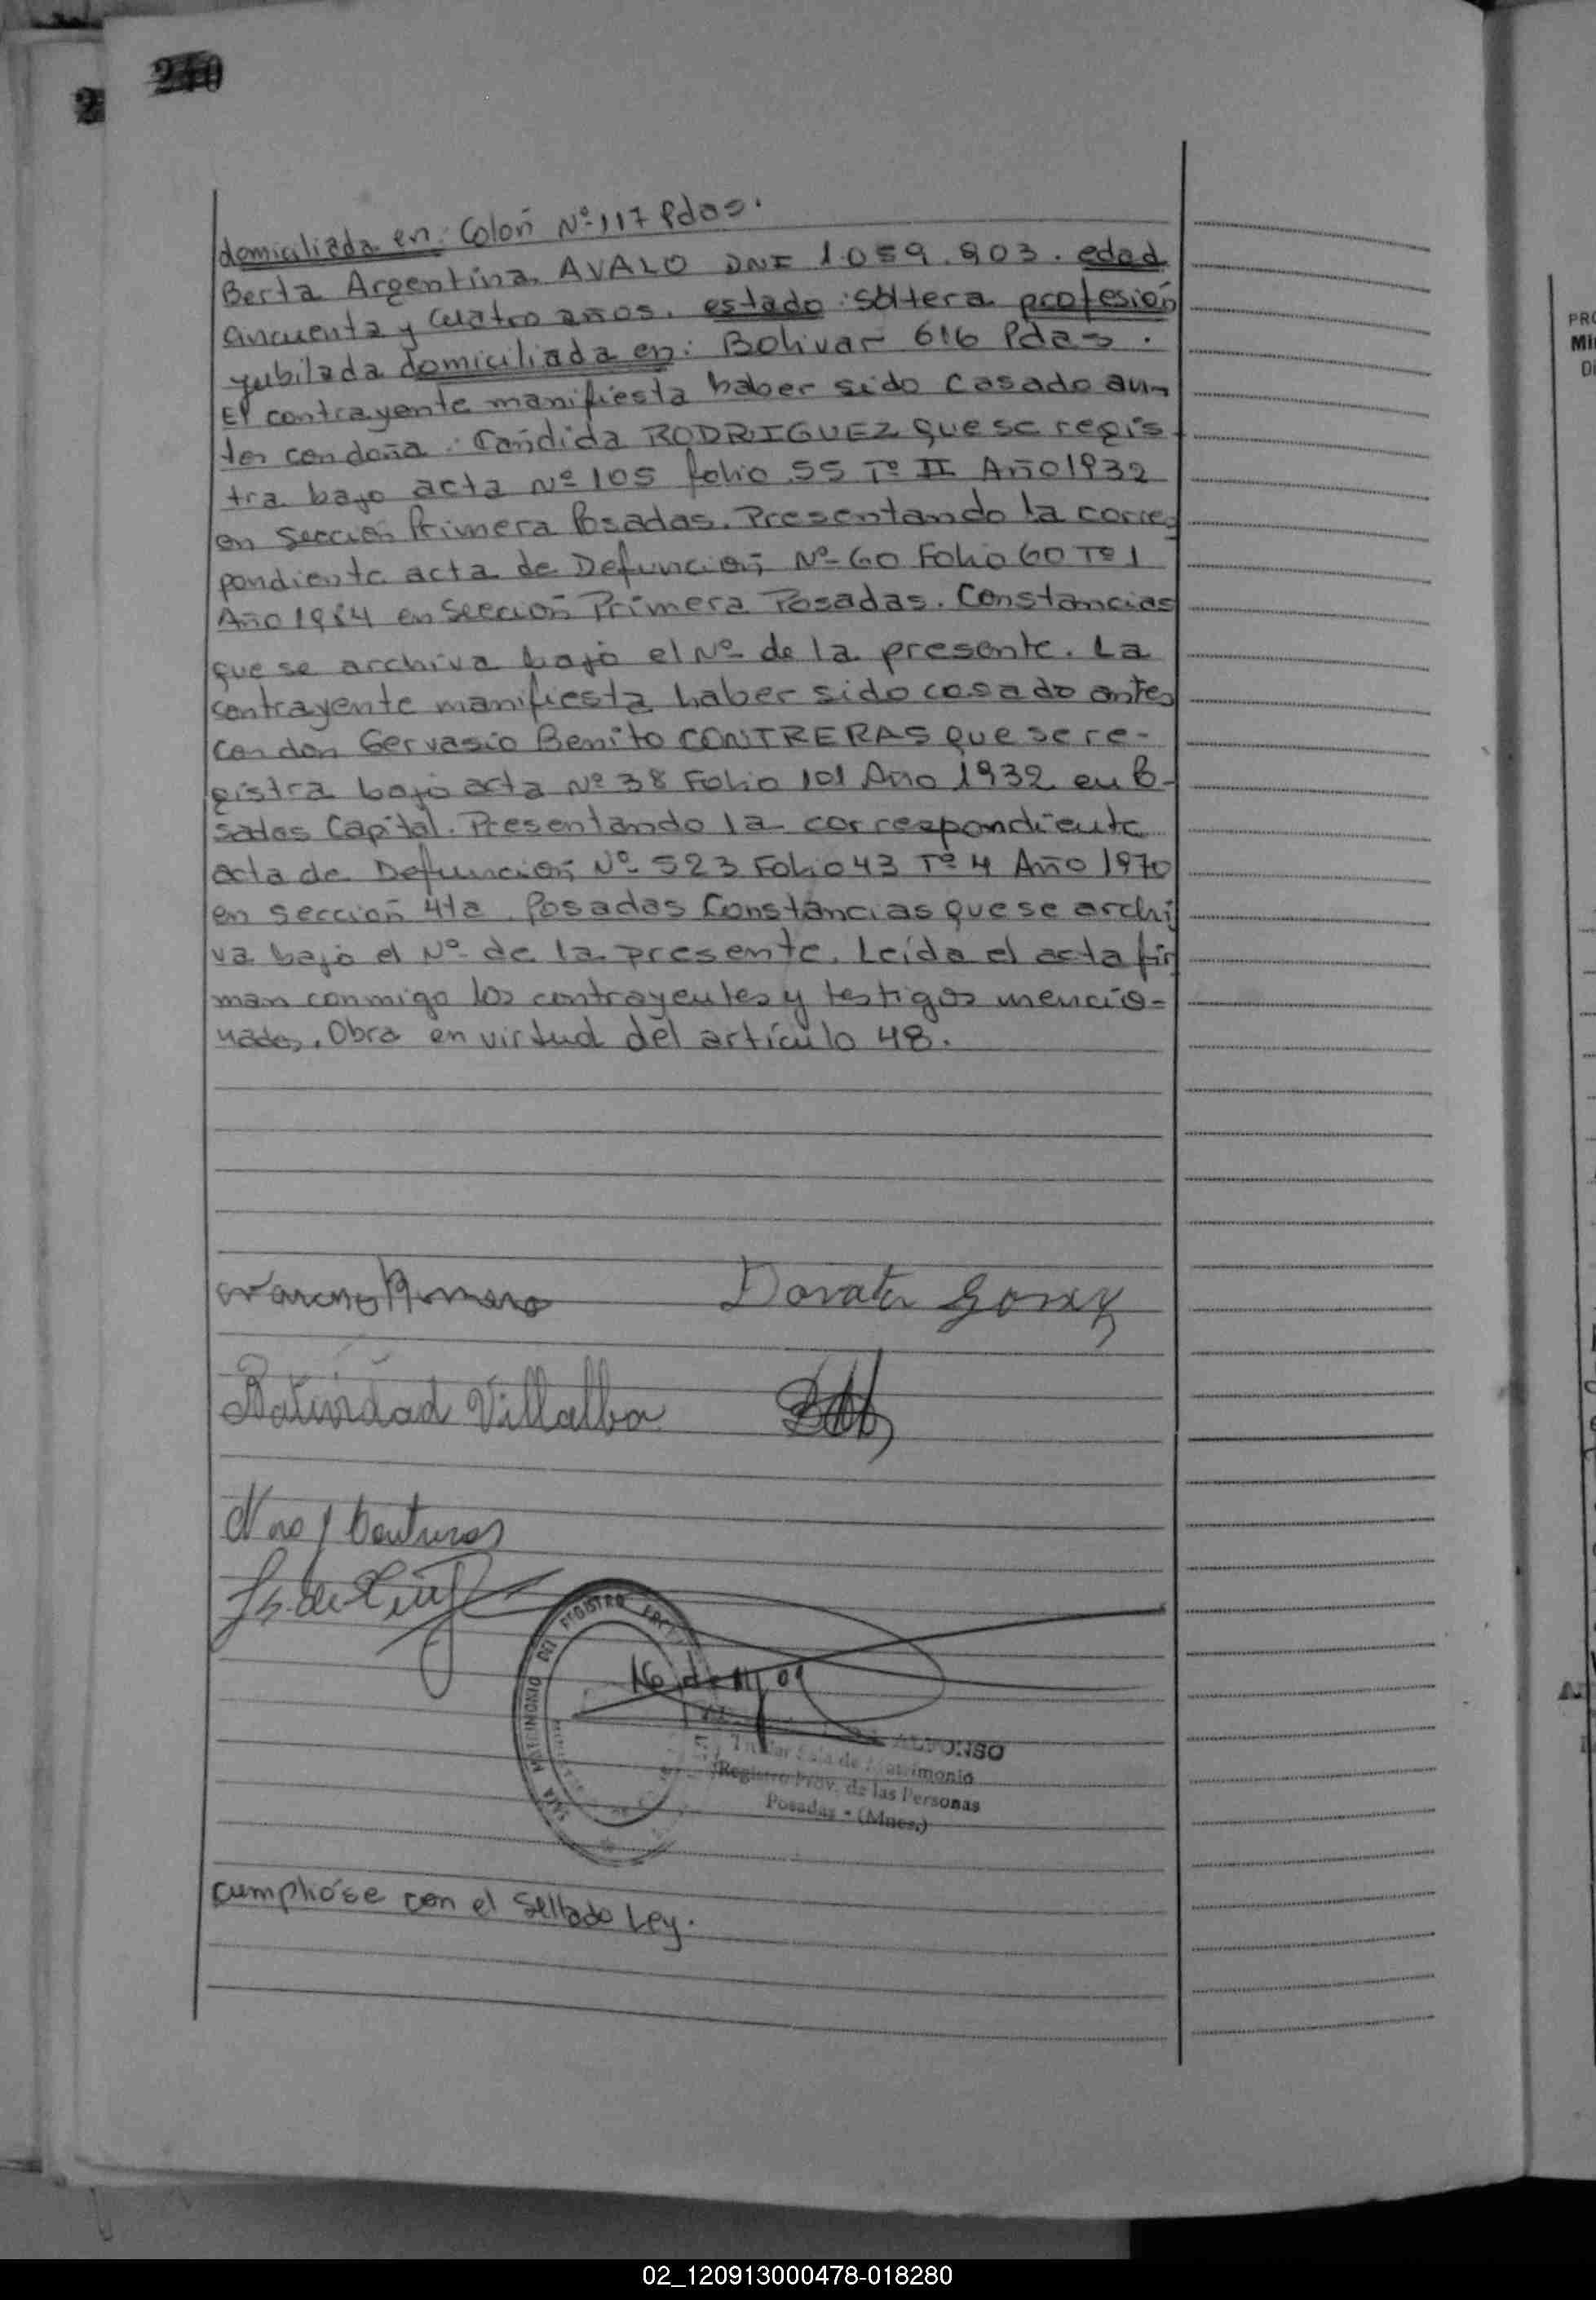 240
2
domiciliada en: Colón Nº 117 Pdas.
Berta Argentina AVALO DNI 1.059.903. edad
cincuenta y cuatro años. estado: Soltera profesión
jubilada domiciliada en: Bolivar 616 Pdas.
El contrayente manifiesta haber sido casado an-
tes con doña: Cándida RODRIGUEZ que se regis-
tra bajo acta Nº 105 folio 55 Tº II Año 1932
en Sección Primera Posadas. Presentando la corres
pondiente acta de Defunción; Nº 60 Folio 60 Tº 1
Año 1984 en Sección Primera Posadas. Constancias
que se archiva bajo el Nº de la presente. La
contrayente manifiesta haber sido casado antes
con don Gervasio Benito CONTRERAS que se re-
gistra bajo acta Nº 38 Folio 101 Año 1932 en Po-
sadas Capital. Presentando la correspondiente
acta de Defunción; Nº 523 Folio 43 Tº 4 Año 1970
en sección 4ta. Posadas Constancias que se archi
va bajo el Nº de la presente. Leída el acta fir
man conmigo los contrayentes y testigos mencio-
nados. Obra en virtud del artículo 48.
Romero Donata Gomez
Natividad Villalba
Contreras
DEL REGISTRO
MATRIMONIO
16 de
ALFONSO
Titular Sala de Matrimonio
Registro Prov. de las Personas
Posadas - (Mnes.)
Cumplióse con el Sellado Ley.
PRO
Mi
Di
02_120913000478-018280